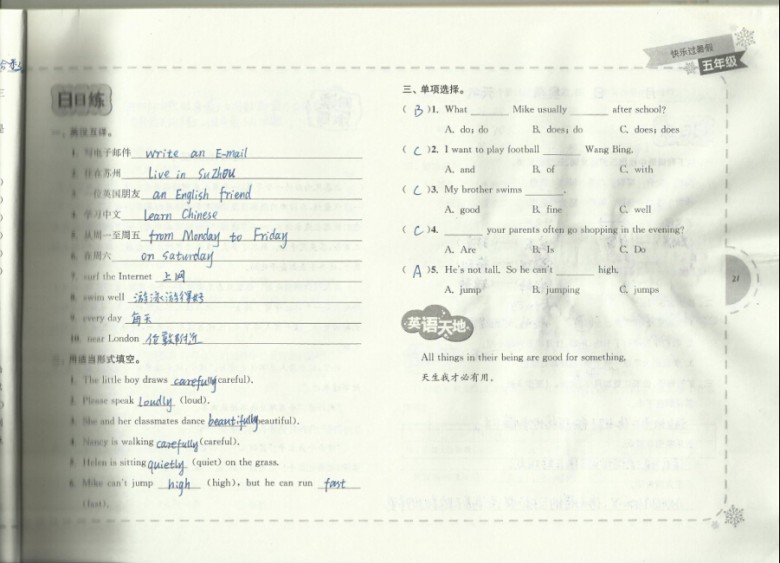 快乐过暑假
五年级
日日练
一、英汉互译。
1. 写电子邮件 write an E-mail
2. 住在苏州 Live in Suzhou
3. 一位英国朋友 an English friend
4. 学习中文 Learn Chinese
5. 从周一至周五 from Monday to Friday
6. 在周六 on saturday
7. surf the Internet 上网
8. swim well 游泳游得好
9. every day 每天
10. near London 伦敦附近
二、用适当形式填空。
1. The little boy draws carefully (careful).
2. Please speak Loudly (loud).
3. She and her classmates dance beautifully (beautiful).
4. Nancy is walking carefully (careful).
5. Helen is sitting quietly (quiet) on the grass.
6. Mike can't jump high (high), but he can run fast
(fast).
三、单项选择。
( B )1. What ______ Mike usually ______ after school?
A. do; do B. does; do C. does; does
( C )2. I want to play football ______ Wang Bing.
A. and B. of C. with
( C )3. My brother swims ______.
A. good B. fine C. well
( C )4. ______ your parents often go shopping in the evening?
A. Are B. Is C. Do
( A )5. He's not tall. So he can't ______ high.
A. jump B. jumping C. jumps
英语天地
All things in their being are good for something.
天生我才必有用。
21